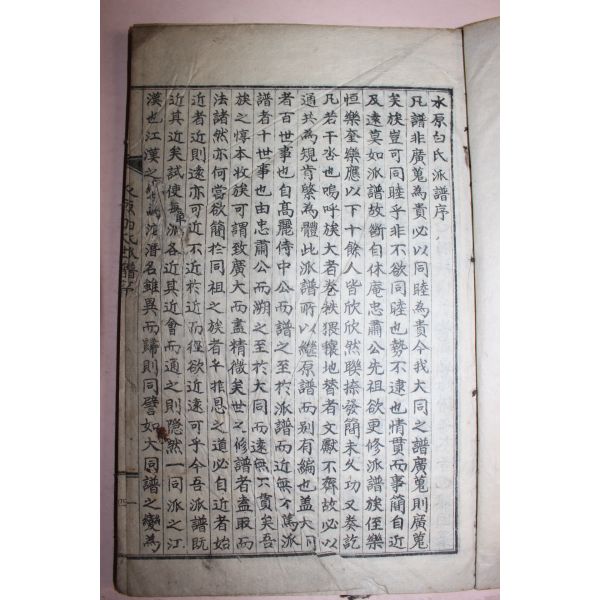 水原白氏派譜序
凡譜非廣蒐為貴必以同睦為貴今我大同之譜廣蒐則廣蒐
矣族豈可同睦乎非不欲同睦也勢不逮也情貫而事簡自近
及遠莫如派譜故斷自休庵忠肅公先祖欲更修派譜族侄樂
恒樂奎樂應以下十餘人皆欣欣然聯捺發簡未久功又奏訖
凡若干呇也嗚呼族大者卷帙猥穰地替者文獻不齊故必以
通共為規肯綮為體此派譜所以繼原譜而別有編也盖大同
者百世事也自高麗侍中公而譜之至於派譜而近無不篤派
譜者十世事也由忠肅公而溯之至於大同而遠無不貫矣吾
族之惇本收族可謂致廣大而盡精微矣世之修譜者盍取而
法諸然亦何嘗欲簡於同祖之族者乎推恩之道必自近者始
近者近則遠亦可近不近於近而徑欲近遠可乎今吾派譜既
近其近矣試使無派各近其近會而通之則隱然一同派之江
漢也江漢之沱潛名雖異而歸則同譬如大同譜之變為
水原白氏派譜序